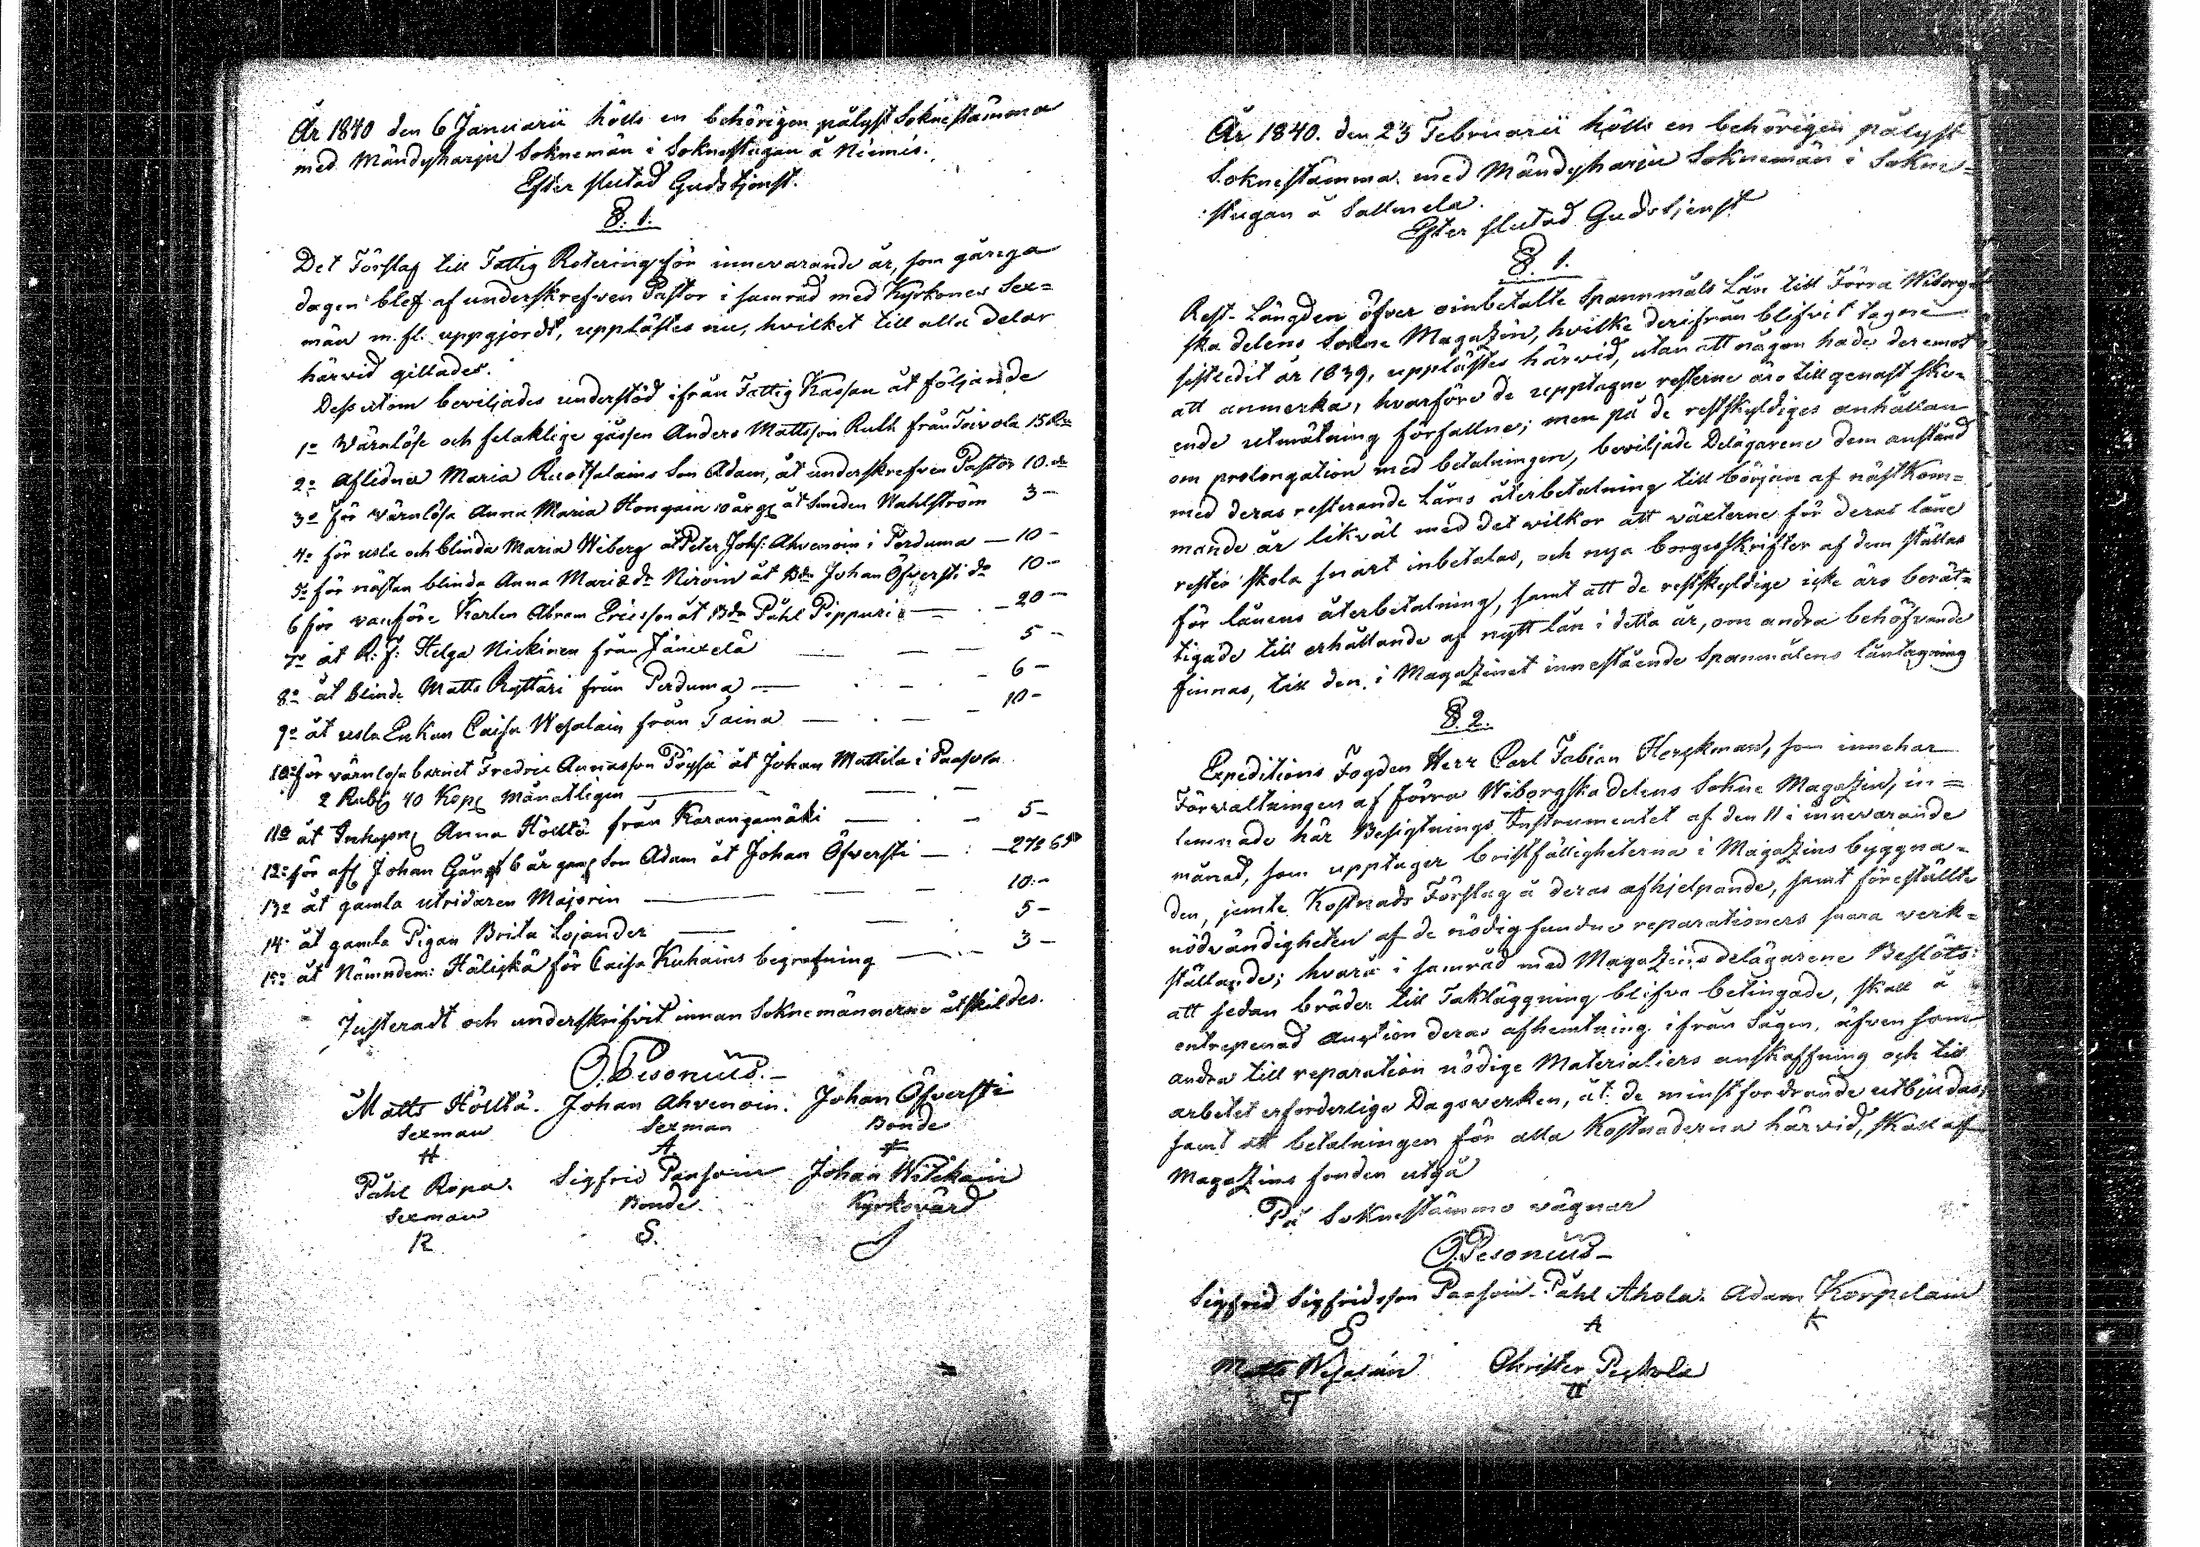 År 1840 den 6 Januarii hölls en behörigen pålyst Soknestämma
med Mändyharju Soknemän i Soknestugan å Niemis.
Efter slutad Gudstjenst.
§. 1.
Det Förslag till Fattig Rotering för innevarande år, som gårga
dagen blef af underskrefven Pastor i samråd med Kyrkones Sex=
män m. fl. uppgjordt, upplästes nu, hvilket till alla delar
härvid gillades.
Dessutom beviljades understöd ifrån Fattig Kassan åt följande
1o Wärnlöse och felaktige gåssen Anders Mattsson Ruth från Toivola 15 Rr
2o Aflidne Maria Ruotsalains Son Adam, åt underskrefven Pastor 10. do
3o för wärnlösa Anna Maria Hongain 10 årg åt Smeden Wahlström 3 -
4o för usla och blinda Maria Wiberg åt Peter Johs: Ahvenoin i Perduma - 10 -
5o för nästan blinda Anna Maria do Niroin åt Bdn Johan Öfversti do 10 -
6 för vanföre Karlen Abram Ericsson åt Bdn Påhl Pippuri - 20 -
7o åt R: f: Helga Nickinen från Jänixelä 5 -
8o åt blinde Matts Ryttäri från Perduma - 6 -
9o åt usla Enkan Caisa Wesalain från Taina - 10 -
10o för värnlösa barnet Fredric Annasson Pöysä åt Johan Mattila i Paasola
2 Rub 40 Kop månatligen
11o åt Inhysn Anna Hölttä från Karangamäki - 5 -
12o för afl Johan Gång 6 år gam Son Adam åt Johan Öfversti - 27: 65
13o åt gamla utridaren Majorin 10: -
14o åt gamla Pigan Brita Lojander 5 -
15o åt Nämndem: Häliskä för Caisa Kuhains begrafning - 3 -
Justeradt och underskrifvit innan Soknemännerne åtskildes.
O. Pesonius. -
Matts Hölttä. Johan Ahvenoin. Johan Öfversti
Sexman Sexman Bonde
H A
Påhl Ropa. Sigfrid Paasoin Johan Wilckain
Sexman Bonde. Kyrkovärd
R S.
År 1840. den 23 Februarii hölls en behörigen pålyst
Soknestämma med Mändyharju Soknemän i Sokne=
stugan å Sallmela.
Efter slutad Gudstjenst
§. 1.
Rest-Längden öfver oinbetalte Spannmåls Lån till Förra Wiborg
ska delens Sokne Magazin, hvilke derifrån blifvit tagne
sistledit år 1839, upplästes härvid, utan att någon hade deremot
att anmerka, hvarföre de upptagne resterne äro till genast ske=
ende utmätning förfallne; men på de restskyldiges anhållan
om prolongation med betalningen, beviljade Delägarene dem anstånd
med deras resterande Låns återbetalning till början af nästkom=
mande år likväl med det wilkor att wäxterne för deras låne
rester skola snart inbetalas, och nya borgesskrifter af dem ställas
för lånens återbetalning, samt att de restskyldige icke äro berät=
tigade till erhållande af nytt lån i detta år, om andra behöfvande
finnas, till den i Magazinet innestående Spanmålens låntagning
§. 2.
Expeditions Fogden Herr Carl Fabian Horgkman, som innehar
Förvaltningen af förra Wiborgska delens Sokne Magazin, in=
lemnade här Besigtnings Instrumentet af den 11 i innevarande
månad, som upptager bristfälligheterna i Magazins byggna=
den, jemte Kostnads Förslag å deras afhjelpande, samt föreställte
nödvändigheten af de nödigfundne reparationers snara verk=
ställande; hvarå i samråd med Magazins delägarene Beslöts:
att sedan bräder till Takläggning blifva betingade, skall å
entrepenad auction deras afhemtning ifrån Sågen, äfven som
andra till reparation nödige Materialiers anskaffning och till
arbetet erforderliga Dagsverken, åt de minstfordrande utbjudas,
samt att betalningen för alla Kostnaderna härvid, skall af
Magazins fonden utgå
På Soknestämmo vägnar
O. Pesonius -
Sigfrid Sigfridsson Paasoin. Påhl Ahola. Adam Korpelain
S A K
Matts Wesalain Christer Peskola